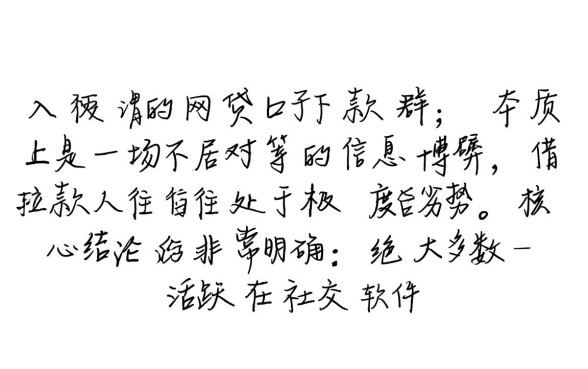 入 谓的网贷口子下款群; 本质
上是一场不居对等的信息博弈, 借
拉款人往往处于极 度劣势。核
心结论 非常明确: 绝大多数一
活跃在社交软件